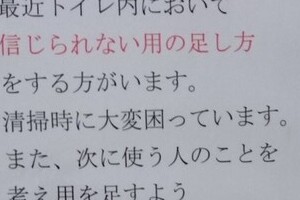 最近トイレ内において
信じられない用の足し方
をする方がいます。
清掃時に大変困っています。
また、次に使う人のことを
考え用を足すよう